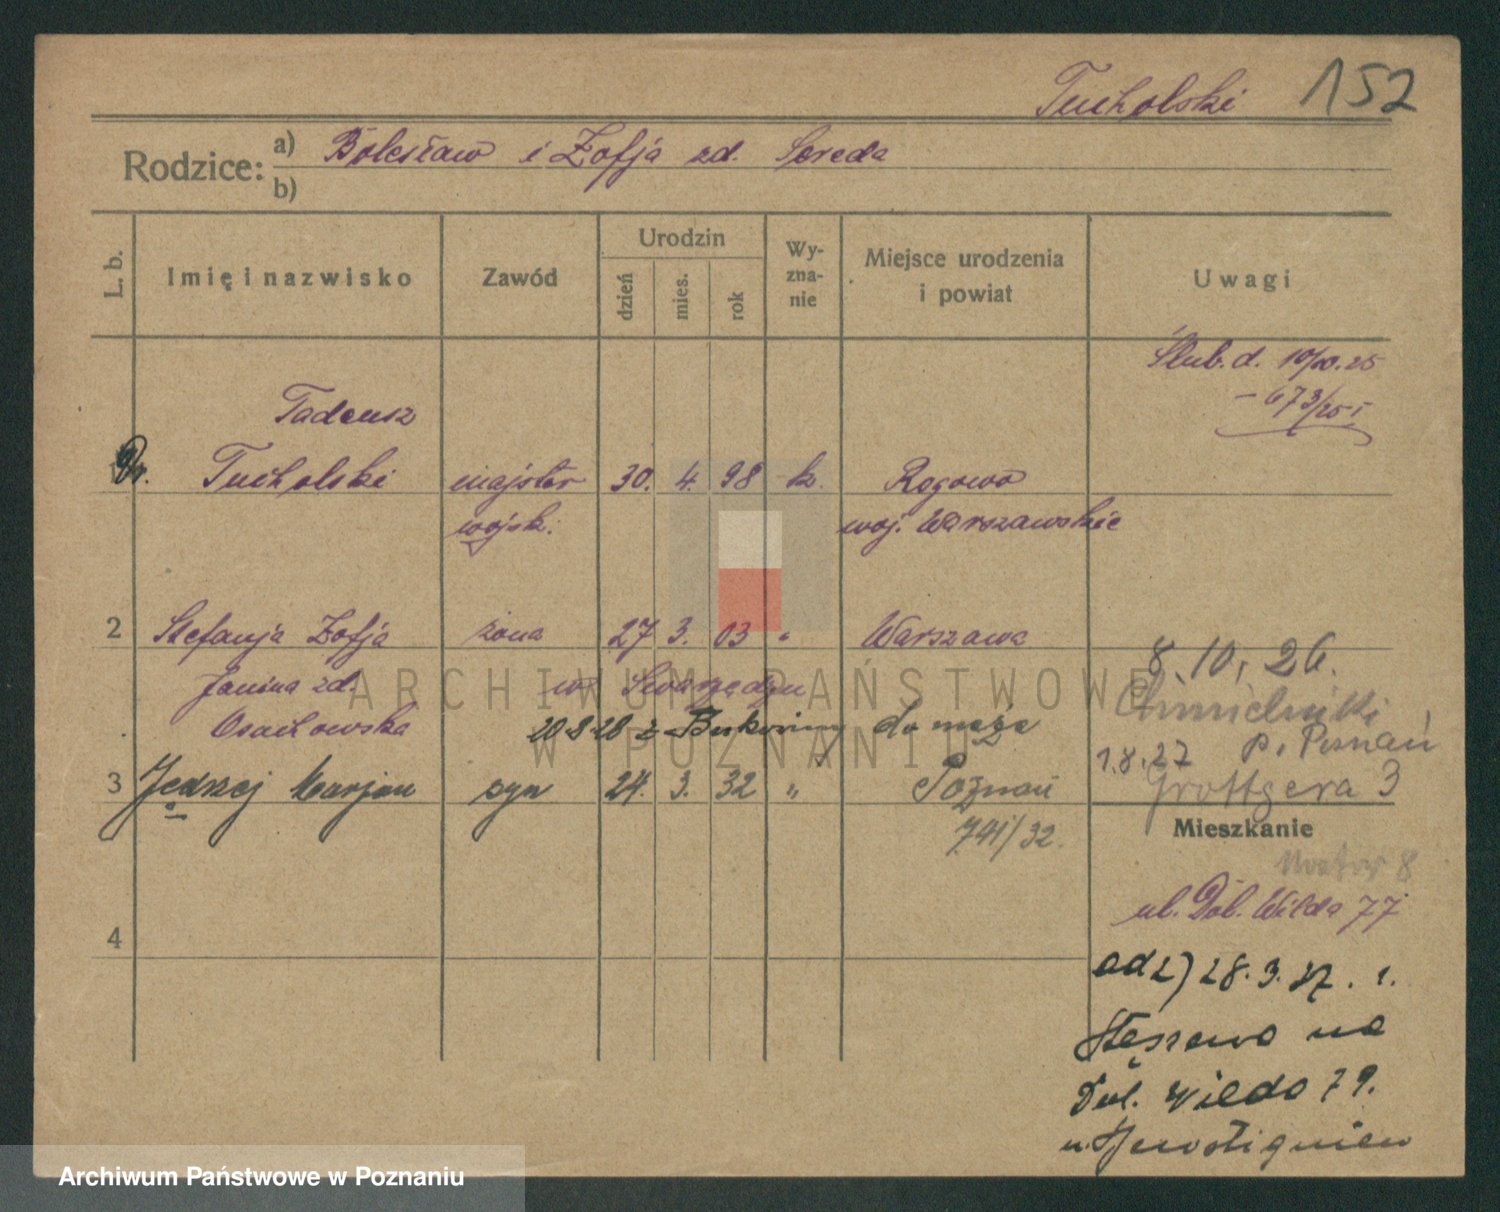 Tucholski 152
Rodzice: a) Bolesław i Zofja zd. Sereda
b)
L. b.
Imię i nazwisko
Zawód
Urodzin
dzień
mies.
rok
Wy-
zna-
nie
Miejsce urodzenia
i powiat
Uwagi
Ślub. d. 10/10.25
- 673/25 I
Tadeusz
Tucholski majster 30. 4. 98 k. Rogowo
wojsk. woj. Warszawskie
2 Stefanja Zofja żona 27 3. 03 " Warszawa
Janina zd. w Swarzędzu
Osachowska 20-8-28 z Bukowiny do męża
8.10.26.
Chmielniki
p. Poznań
1.8.27
Grottgera 3
3 Jędrzej Marjan syn 24. 3. 32 " Poznań
741/32.
Mieszkanie
8
ul. Dol. Wilda 77
4
ad 2) 28.3.27. z.
Stęszewa na
Dol. Wilda 79.
ARCHIWUM PAŃSTWOWE
W POZNANIU
Archiwum Państwowe w Poznaniu